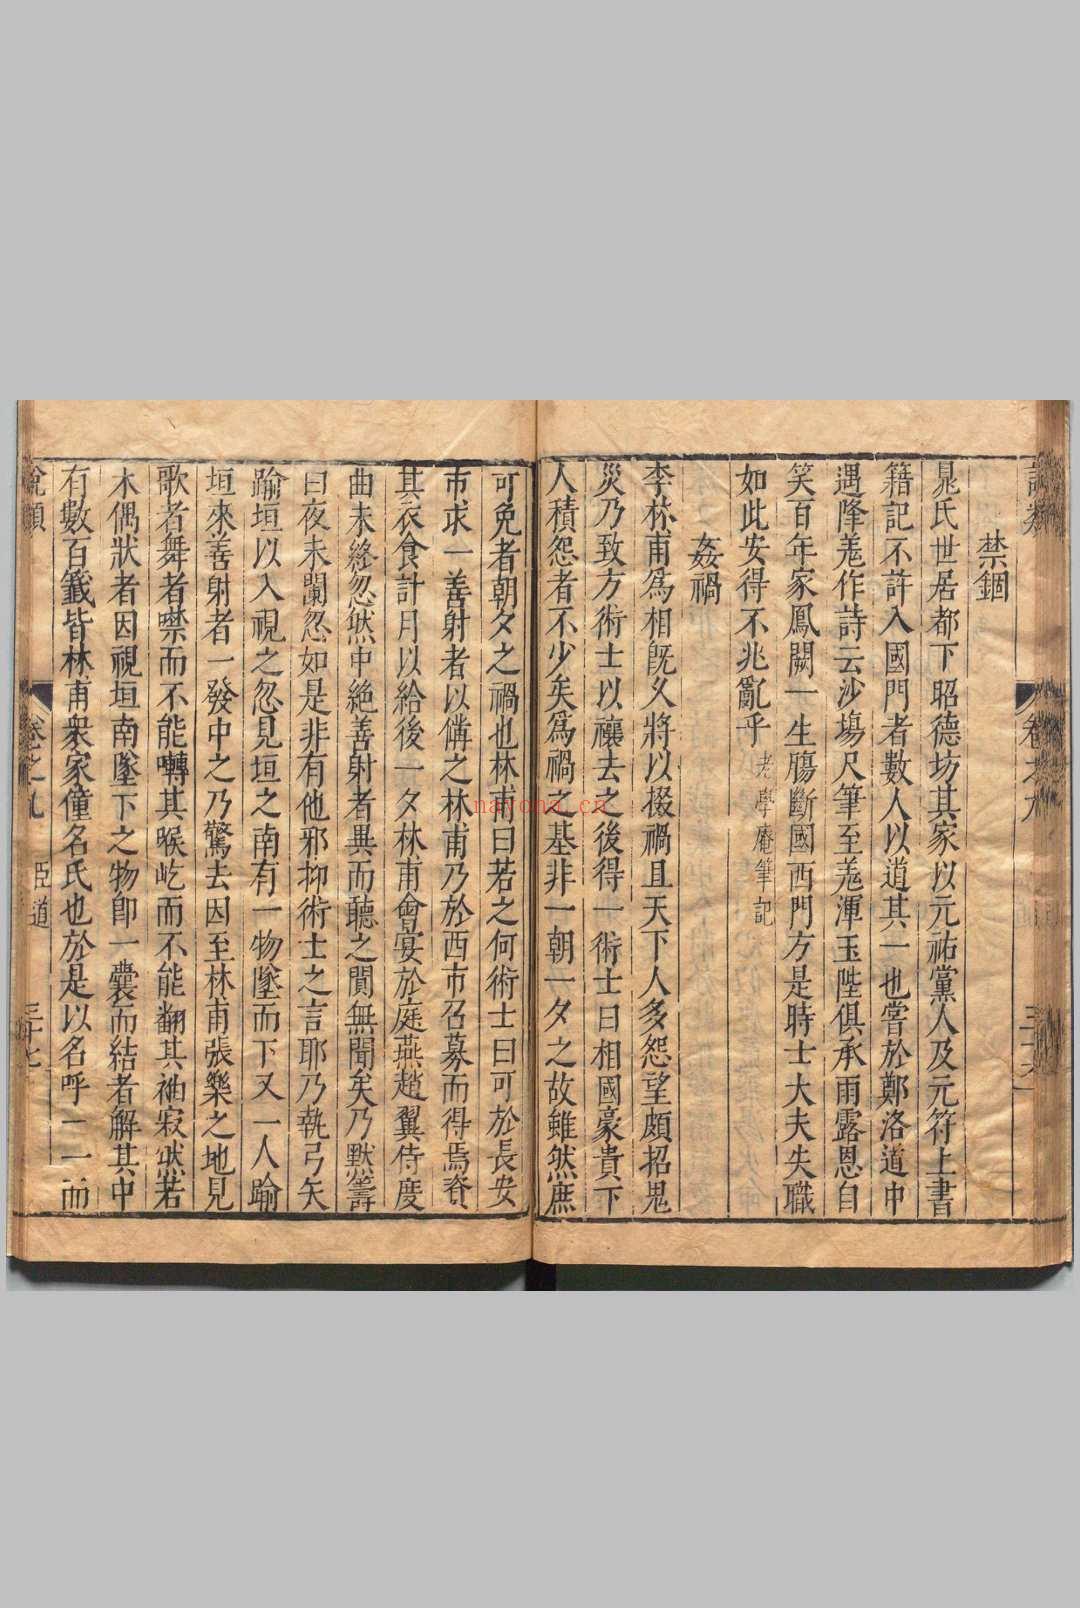 禁錮
晁氏世居都下昭德坊其家以元祐黨人及元符上書
籍記不許入國門者數人以道其一也嘗於鄭洛道中
遇降羗作詩云沙塲尺筆至羗渾玉陛俱承雨露恩自
笑百年家鳳闕一生腸斷國西門方是時士大夫失職
如此安得不兆亂乎 老學庵筆記
姦禍
李林甫爲相旣久將以掇禍且天下人多怨望頗招鬼
災乃致方術士以禳去之後得一術士曰相國豪貴下
人積怨者不少矣爲禍之基非一朝一夕之故雖然庶
可免者朝夕之禍也林甫曰若之何術士曰可於長安
市求一善射者以備之林甫乃於西市召募而得焉資
其衣食計月以給後一夕林甫會宴於庭燕趙翼侍度
曲未終忽然中絶善射者異而聽之閴無聞矣乃默籌
曰夜未闌忽如是非有他邪抑術士之言耶乃執弓矢
踰垣以入視之忽見垣之南有一物墜而下又一人踰
垣來善射者一發中之乃驚去因至林甫張樂之地見
歌者舞者噤而不能囀其喉屹而不能翻其袖寂然若
木偶狀者因視垣南墜下之物卽一囊而結者解其中
有數百籤皆林甫衆家僮名氏也於是以名呼一一而
說類 卷之九 臣道 三十七
nayona.cn